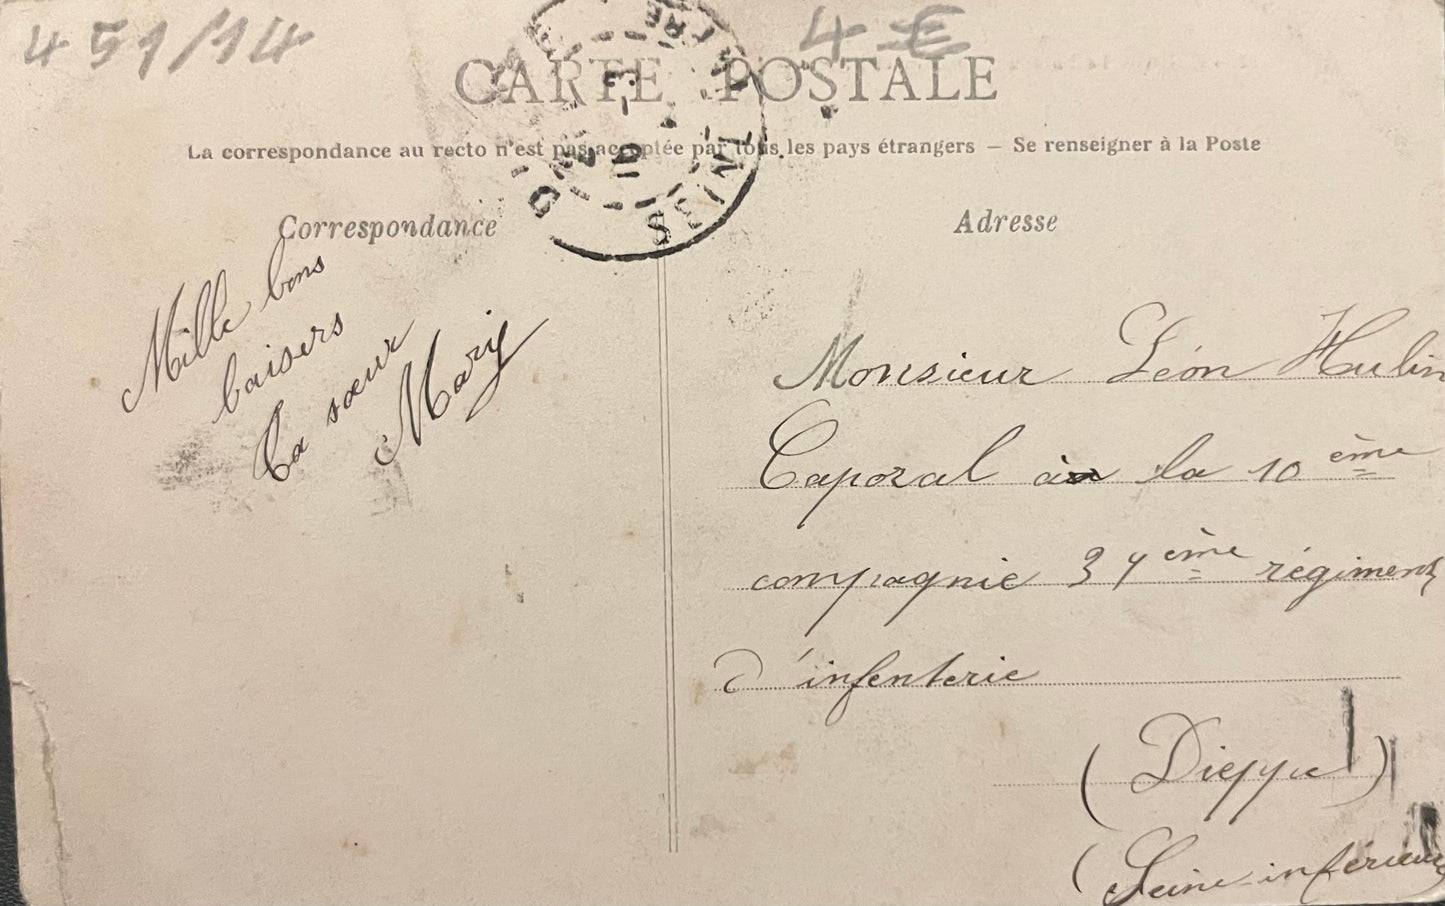 451/14
4 €
CARTE POSTALE
La correspondance au recto n'est pas acceptée par tous les pays étrangers — Se renseigner à la Poste
Correspondance
Adresse
Mille bons
baisers
Ta sœur
Mary
Monsieur Léon Hulin
Caporal à la 10 ème
compagnie 39 ème régiment
d'infenterie
(Dieppe)
(Seine-inférieure